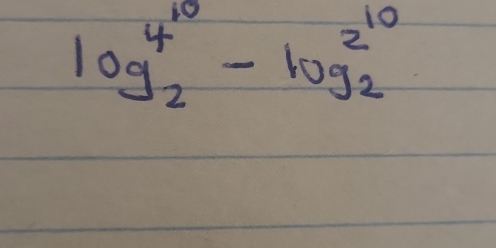 log₂4¹⁰ - log₂2¹⁰